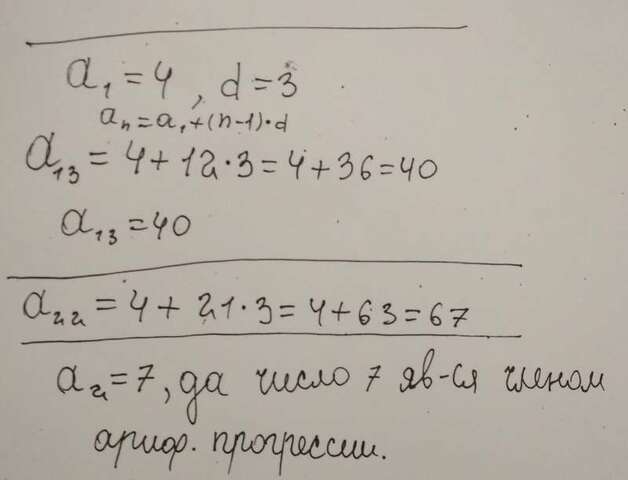 a₁ = 4, d = 3
aₙ = a₁ + (n-1)·d
a₁₃ = 4 + 12·3 = 4 + 36 = 40
a₁₃ = 40
a₂₂ = 4 + 21·3 = 4 + 63 = 67
a₂ = 7, да число 7 яв-ся членом
ариф. прогрессии.